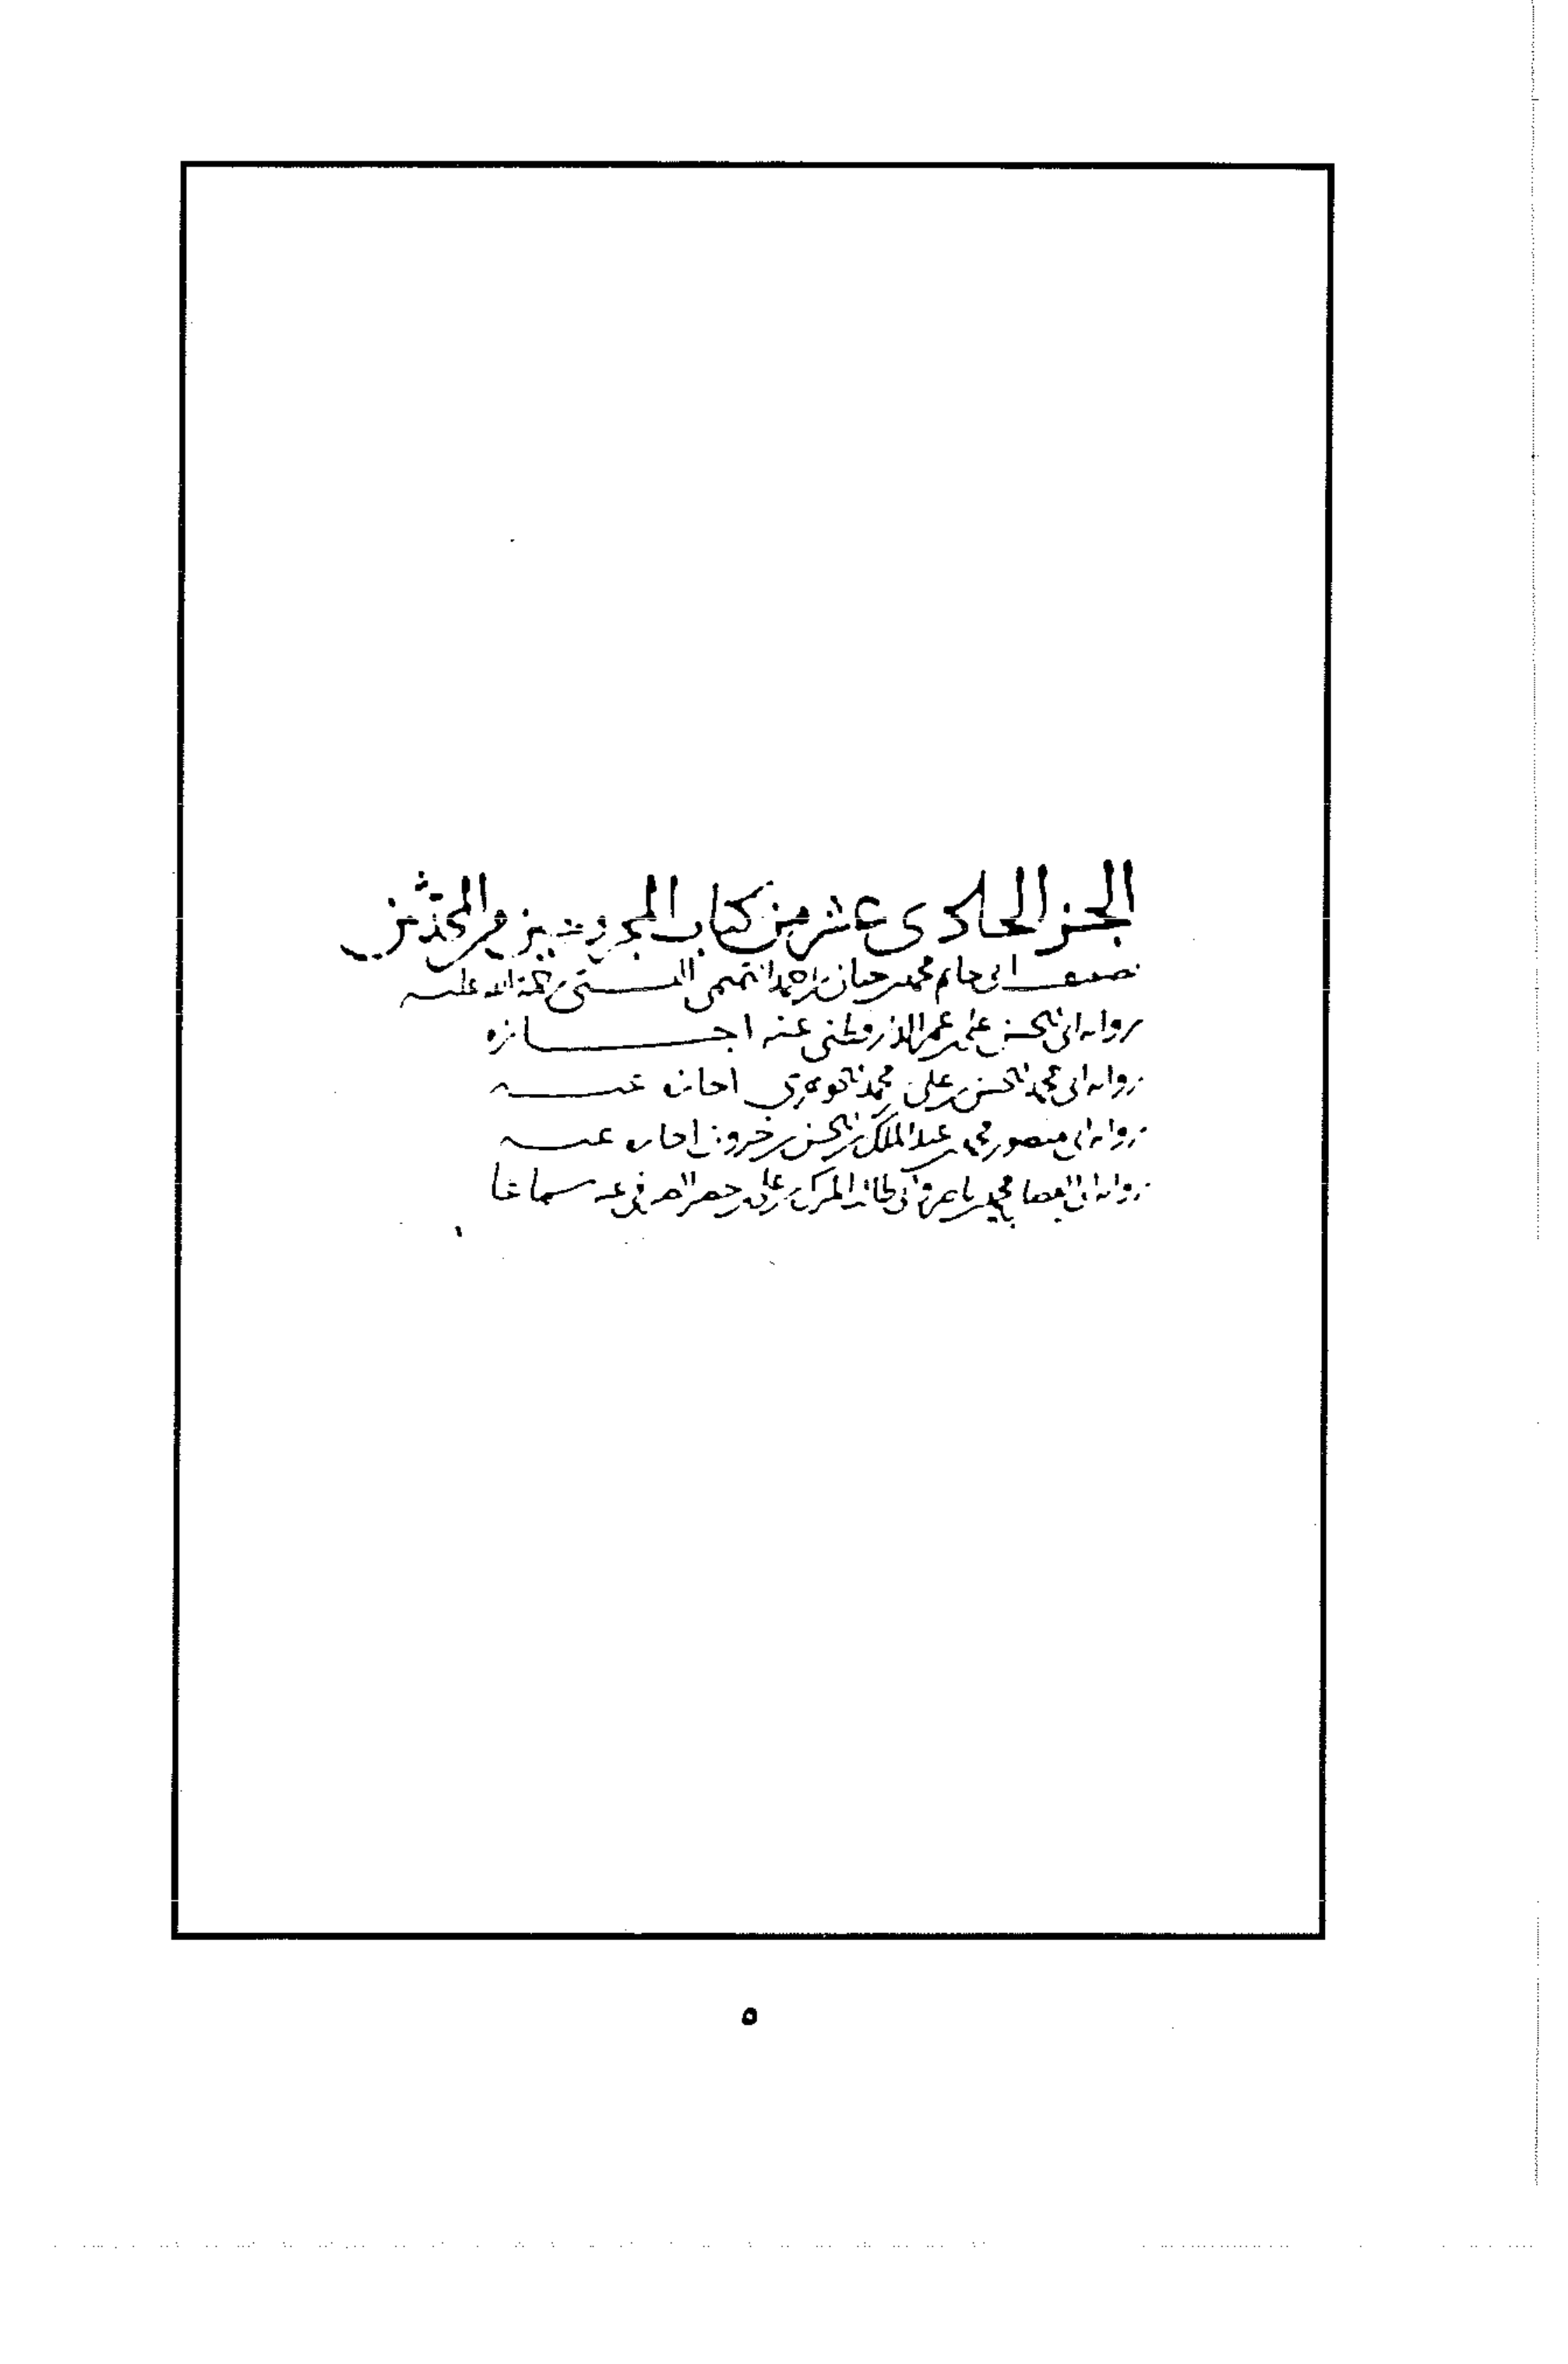 الجز الحادى عشر من كتاب المجروحين من المحدثين
تصنيف ابى حاتم محمد بن حبان بن احمد التميمى البستى رحمة الله عليه
رواية ابى الحسن على بن عمر الدارقطنى عنه اجازه
رواية ابى محمد الحسن بن على بن محمد الجوهرى اجازة عنه
رواية ابى منصور محمد بن عبد الملك بن الحسن بن خيرون اجازة عنه
رواية ابى محمد بن المبارك بن على عنه سماعا
٥